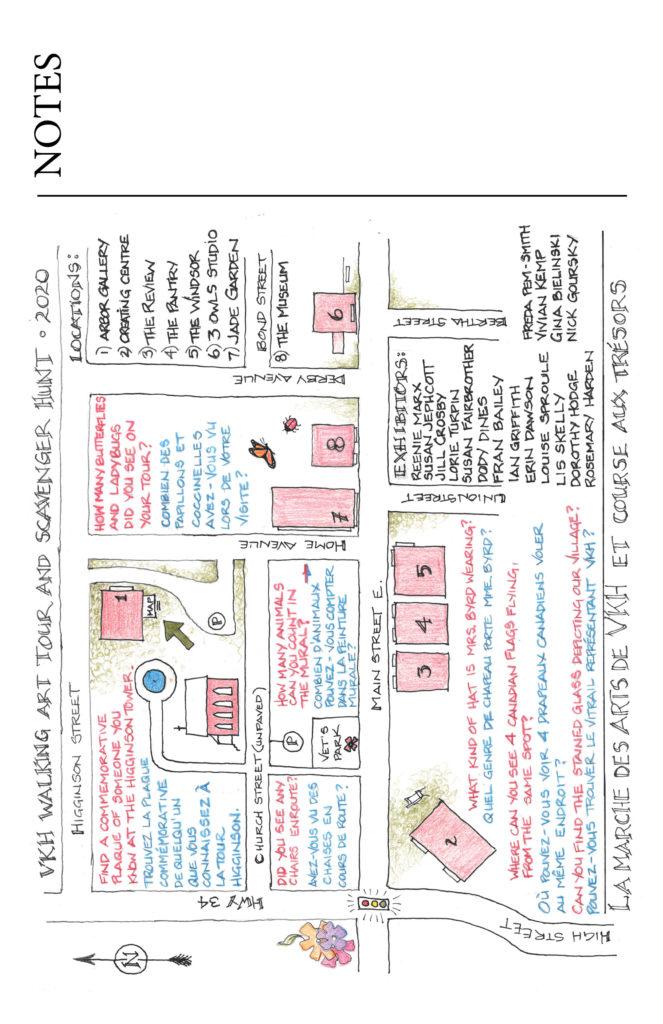 NOTES
VKH WALKING ART TOUR AND SCAVENGER HUNT • 2020
N
HIGGINSON STREET
FIND A COMMEMORATIVE
PLAQUE OF SOMEONE YOU
KNOW AT THE HIGGINSON TOWER.
TROUVEZ LA PLAQUE
COMMÉMORATIVE
DE QUELQU'UN
QUE VOUS
CONNAISSEZ À
LA TOUR
HIGGINSON.
1
MAP
P
HOW MANY BUTTERFLIES
AND LADYBUGS
DID YOU SEE ON
YOUR TOUR?
COMBIEN DES
PAPILLONS ET
COCCINELLES
AVEZ-VOUS VU
LORS DE VOTRE
VISITE?
7
8
LOCATIONS:
1) ARBOR GALLERY
2) CREATING CENTRE
3) THE REVIEW
4) THE PANTRY
5) THE WINDSOR
6) 3 OWLS STUDIO
7) JADE GARDEN
BOND STREET
8) THE MUSEUM
6
HWY 34
HOME AVENUE
DERBY AVENUE
CHURCH STREET (UNPAVED)
DID YOU SEE ANY
CHAIRS ENROUTE?
AVEZ-VOUS VU DES
CHAISES EN
COURS DE ROUTE?
P
VET'S
PARK
HOW MANY ANIMALS
CAN YOU COUNT IN
THE MURAL?
COMBIEN D'ANIMAUX
POUVEZ-VOUS COMPTER
DANS LA PEINTURE
MURALE?
MAIN STREET E.
2
3
4
5
UNION STREET
BERTHA STREET
HIGH STREET
WHAT KIND OF HAT IS MRS. BYRD WEARING?
QUEL GENRE DE CHAPEAU PORTE MME. BYRD?
WHERE CAN YOU SEE 4 CANADIAN FLAGS FLYING,
FROM THE SAME SPOT?
OÙ POUVEZ-VOUS VOIR 4 DRAPEAUX CANADIENS VOLER
AU MÊME ENDROIT?
CAN YOU FIND THE STAINED GLASS DEPICTING OUR VILLAGE?
POUVEZ-VOUS TROUVER LE VITRAIL REPRÉSENTANT VKH?
EXHIBITORS:
REENIE MARX
SUSAN JEPHCOTT
JILL CROSBY
LORIE TURPIN
SUSAN FAIRBROTHER
DODY DINES
FRAN BAILEY
IAN GRIFFITH
ERIN DAWSON
LOUISE SPROULE
LIS SKELLY
DOROTHY HODGE
ROSEMARY HARDEN
FREDA PEM-SMITH
VIVIAN KEMP
GINA BIELINSKI
NICK GOURSKY
LA MARCHE DES ARTS DE VKH ET COURSE AUX TRÉSORS